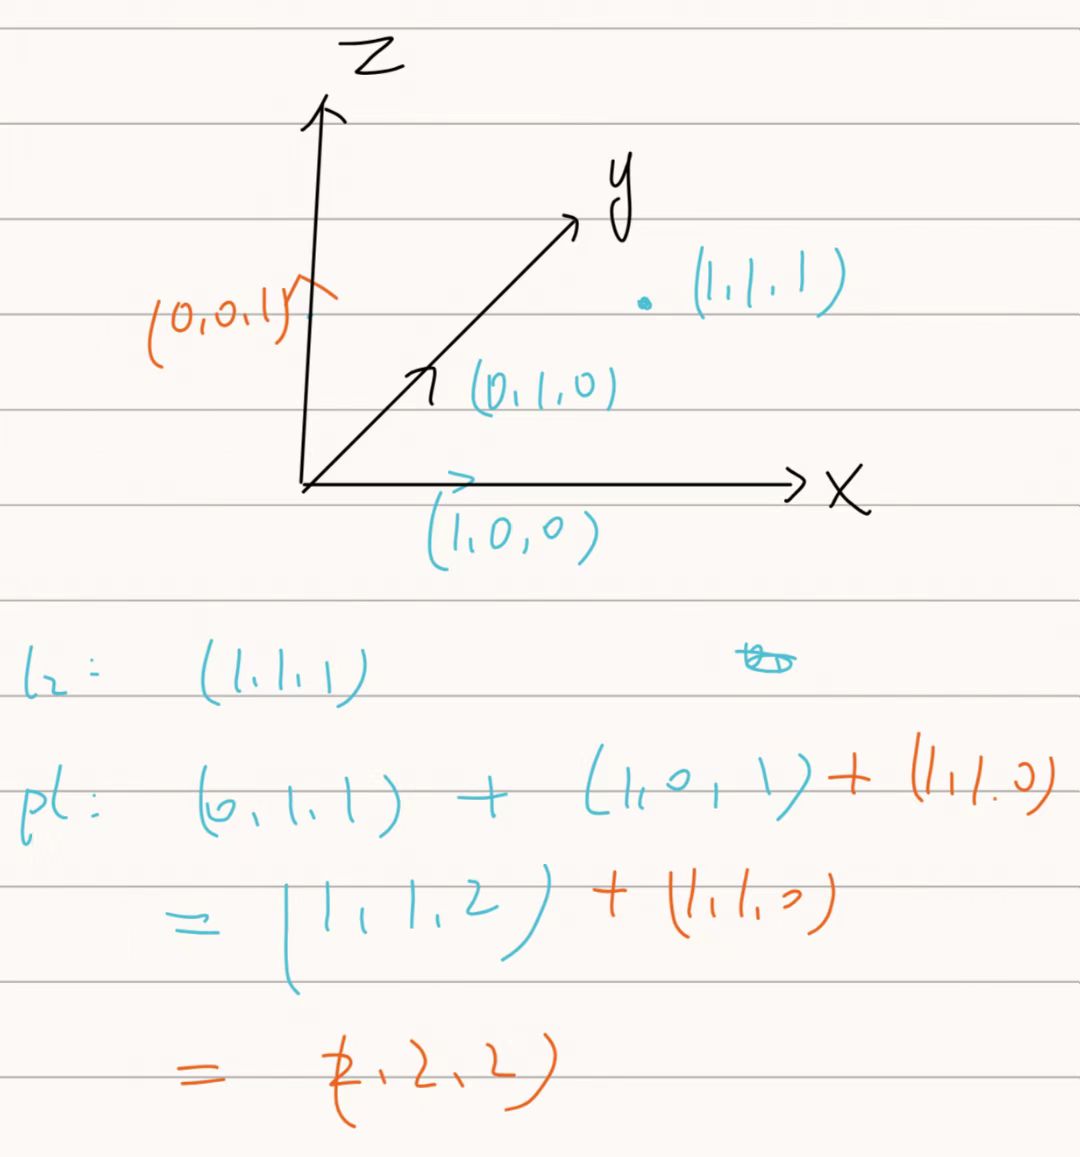 Z
y
(1,1,1)
(0,0,1)
(0,1,0)
x
(1,0,0)
l2: (1,1,1)
pl: (0,1,1) + (1,0,1) + (1,1,0)
= (1,1,2) + (1,1,0)
= (2,2,2)